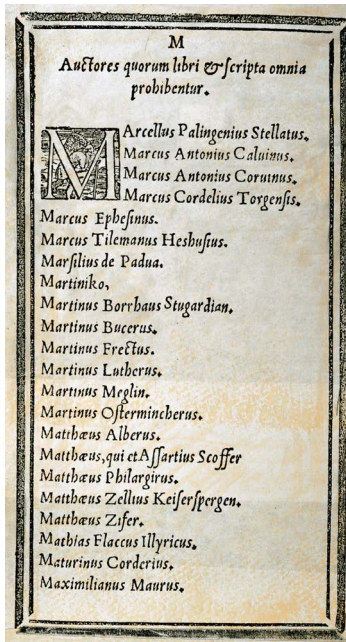 M
Auctores quorum libri & scripta omnia
prohibentur.
Marcellus Palingenius Stellatus.
Marcus Antonius Caluinus.
Marcus Antonius Coruinus.
Marcus Cordelius Torgensis.
Marcus Ephesinus.
Marcus Tilemanus Heshusius.
Marsilius de Padua.
Martiniko,
Martinus Borrhaus Stugardian.
Martinus Bucerus.
Martinus Frectus.
Martinus Lutherus.
Martinus Meglin.
Martinus Ostermincherus.
Matthæus Alberus.
Matthæus, qui et Assartius Scoffer
Matthæus Philargirus.
Matthæus Zellius Keiserspergen.
Matthæus Zifer.
Mathias Flaccus Illyricus.
Maturinus Corderius.
Maximilianus Maurus.